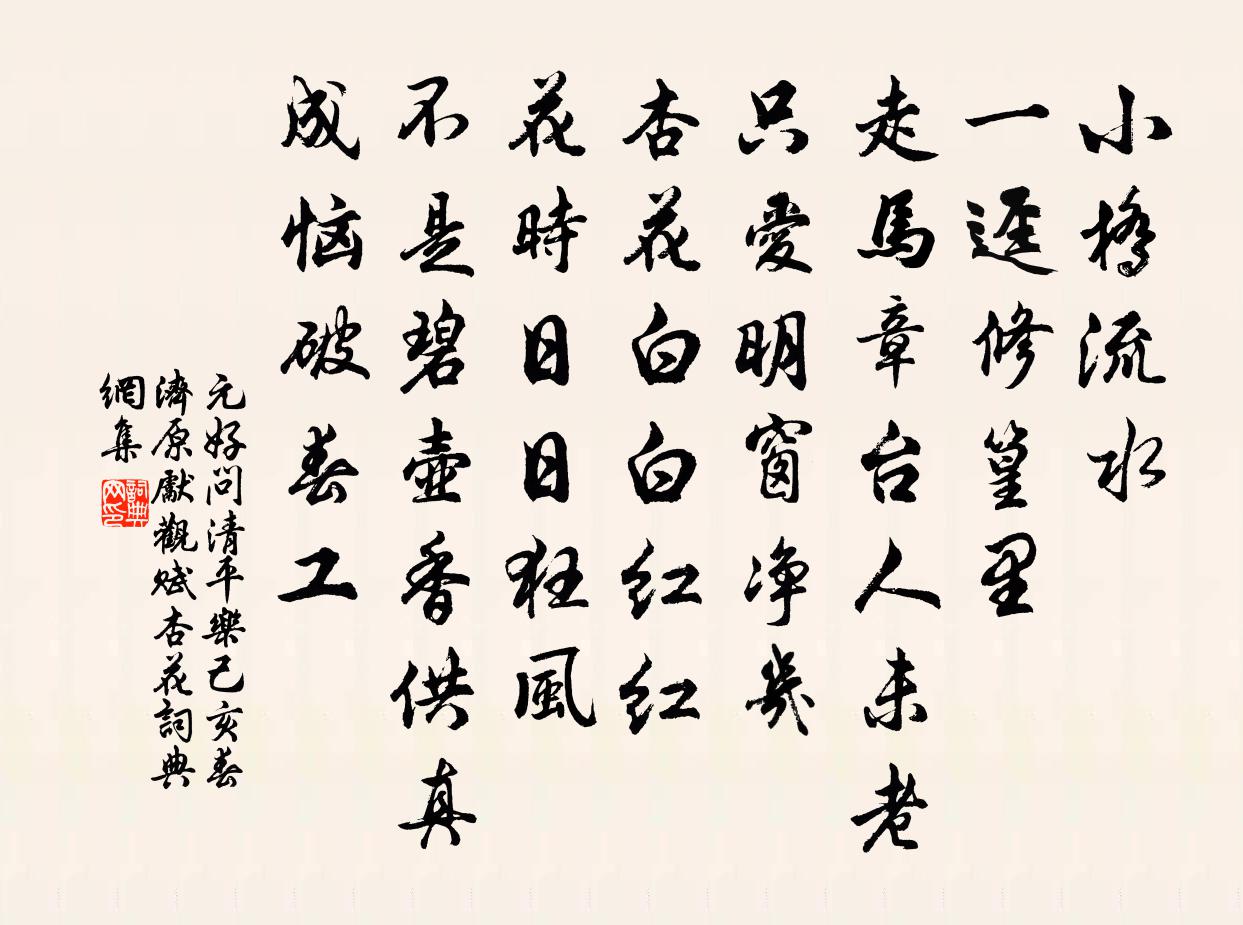 小橋流水
一逕修篁里
走馬章台人未老
只愛明窗净幾
杏花白白红红
花時日日狂風
不是碧壺香供真
成恼破春工
元好問清平樂己亥春
濟原獻觀賦杏花詞典
網集
詞典网印